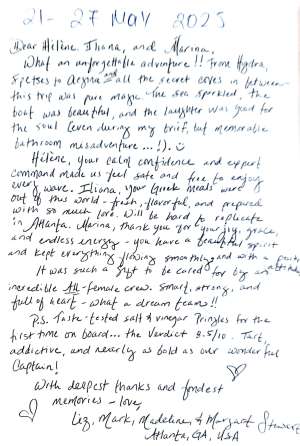 21 - 27 MAY 2025
Dear Hélène, Iliana, and Marina,
What an unforgettable adventure!! From Hydra,
Spetses to Aegina and all the secret coves in between -
this trip was pure magic. The sea sparkled, the
boat was beautiful, and the laughter was good for
the soul (even during my brief, but memorable
bathroom misadventure...!). ☺
Hélène, your calm confidence and expert
command made us feel safe and free to enjoy
every wave. Iliana, your Greek meals were
out of this world - fresh, flavorful, and prepared
with so much love. Will be hard to replicate
in Atlanta. Marina, thank you for your joy, grace,
and endless energy - you have a beautiful spirit
and kept everything flowing smoothly and with a
It was such a gift to be cared for by an
incredible All-female crew. Smart, strong, and
full of heart - what a dream team!!
P.S. Taste-tested salt & vinegar Pringles for the
first time on board... the verdict 8.5/10. Tart,
addictive, and nearly as bold as our wonderful
Captain!
With deepest thanks and fondest
memories - love,
Liz, Mark, Madeline, & Margaret Stewart
Atlanta, GA, USA